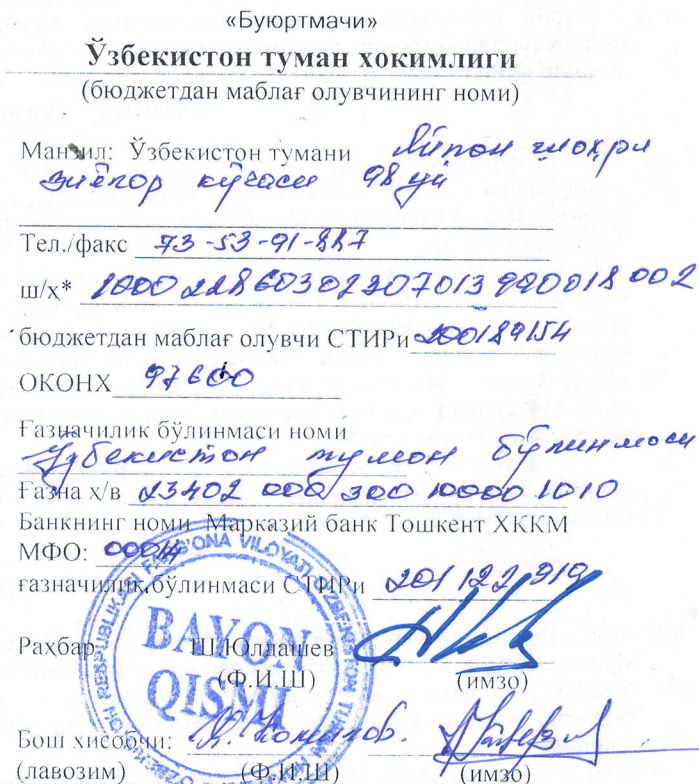 «Буюртмачи»
Ўзбекистон туман хокимлиги
(бюджетдан маблағ олувчининг номи)
Манзил: Ўзбекистон тумани Яйпан шаҳри
Зиёкор кўчаси 98 уй
Тел./факс 73-53-91-887
ш/ҳ* 1000 22860302307013 990018 002
бюджетдан маблағ олувчи СТИРи 200189154
ОКОНХ 97600
Ғазначилик бўлинмаси номи
Ўзбекистон туман бўлинмаси
Ғазна ҳ/в 23402 000 300 10000 1010
Банкнинг номи Марказий банк Тошкент ХККМ
МФО: 00014
ғазначилик бўлинмаси СТИРи 201 122 919
Раҳбар Ш.Юлдашев
(Ф.И.Ш) (имзо)
BAYON
QISMI
Бош хисобчи:
(лавозим) (Ф.И.Ш) (имзо)